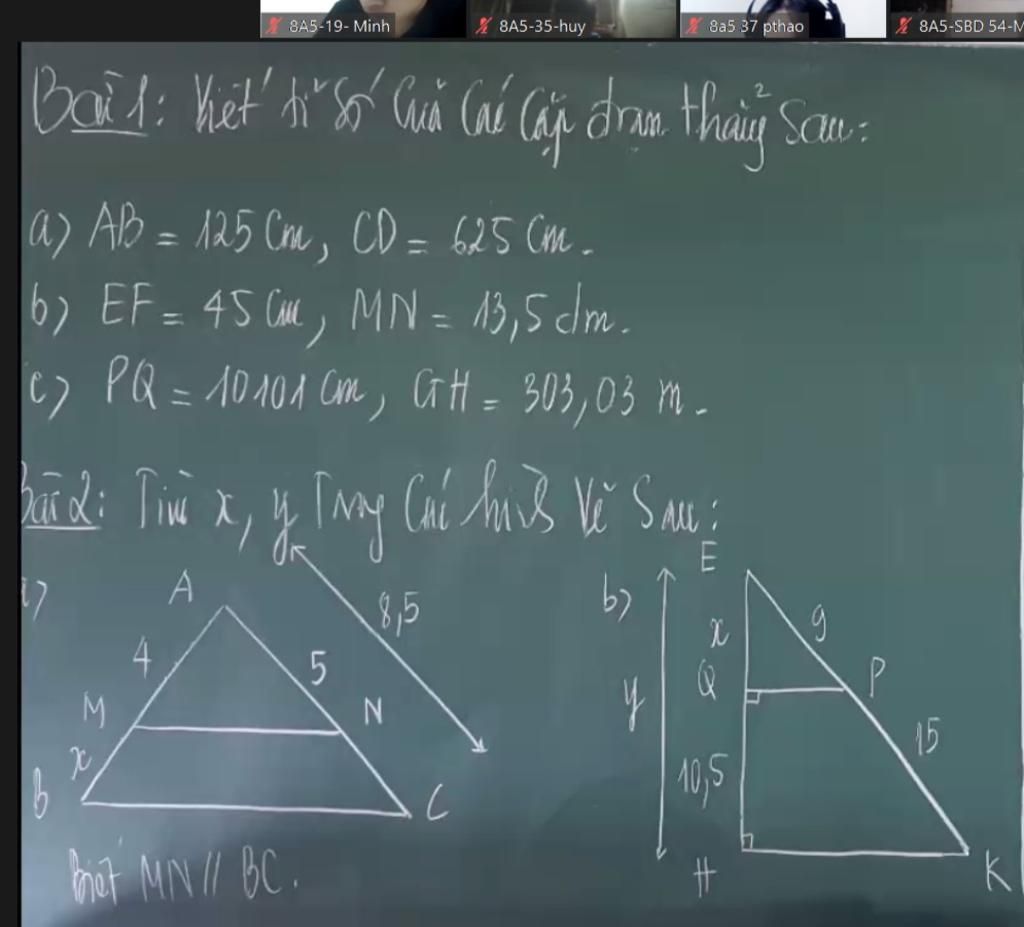 8A5-19- Minh
8A5-35-huy
8a5 37 pthao
8A5-SBD 54-M
Bài 1: Viết tỉ số của các cặp đoạn thẳng sau:
a) AB = 125 cm, CD = 625 cm.
b) EF = 45 cm, MN = 13,5 dm.
c) PQ = 10101 cm, GH = 303,03 m.
Bài 2: Tìm x, y Trong các hình vẽ sau:
a)
A
8,5
4
5
M
N
x
B
C
Biết MN // BC.
b)
E
x
9
Q
P
y
10,5
15
H
K